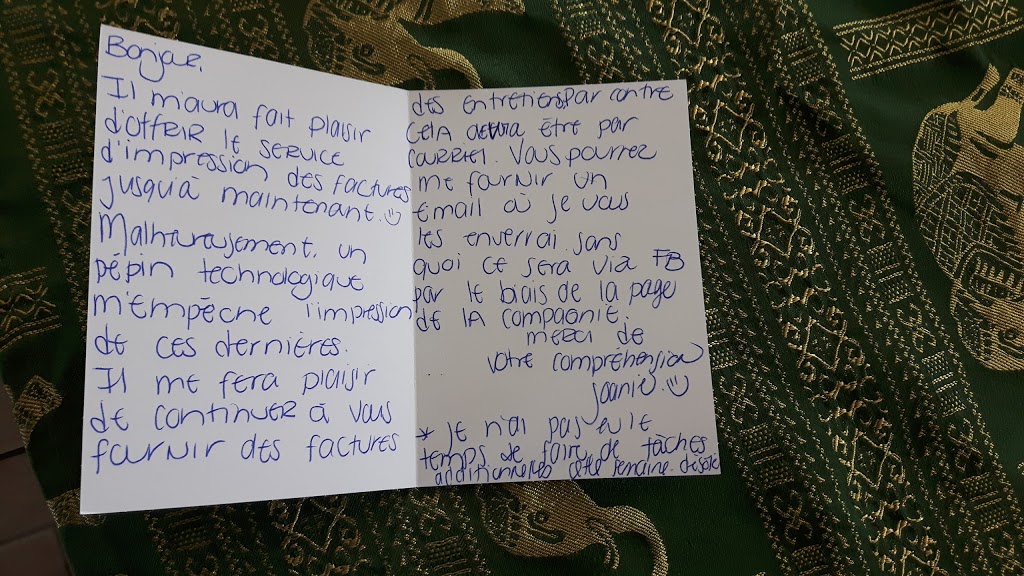 Bonjour,
Il m'aura fait plaisir
d'offrir le service
d'impression des factures
jusqu'à maintenant. ☺
Malheureusement, un
pépin technologique
m'empêche l'impression
de ces dernières.
Il me fera plaisir
de continuer à vous
fournir des factures
des entretiens par contre
cela devra être par
courriel. Vous pourrez
me fournir un
email où je vous
les enverrai sans
quoi ce sera via FB
par le biais de la page
de la compagnie.
merci de
votre compréhension
Joanie ☺
* je n'ai pas eu le
temps de faire de tâches
additionnelles cette semaine désolé